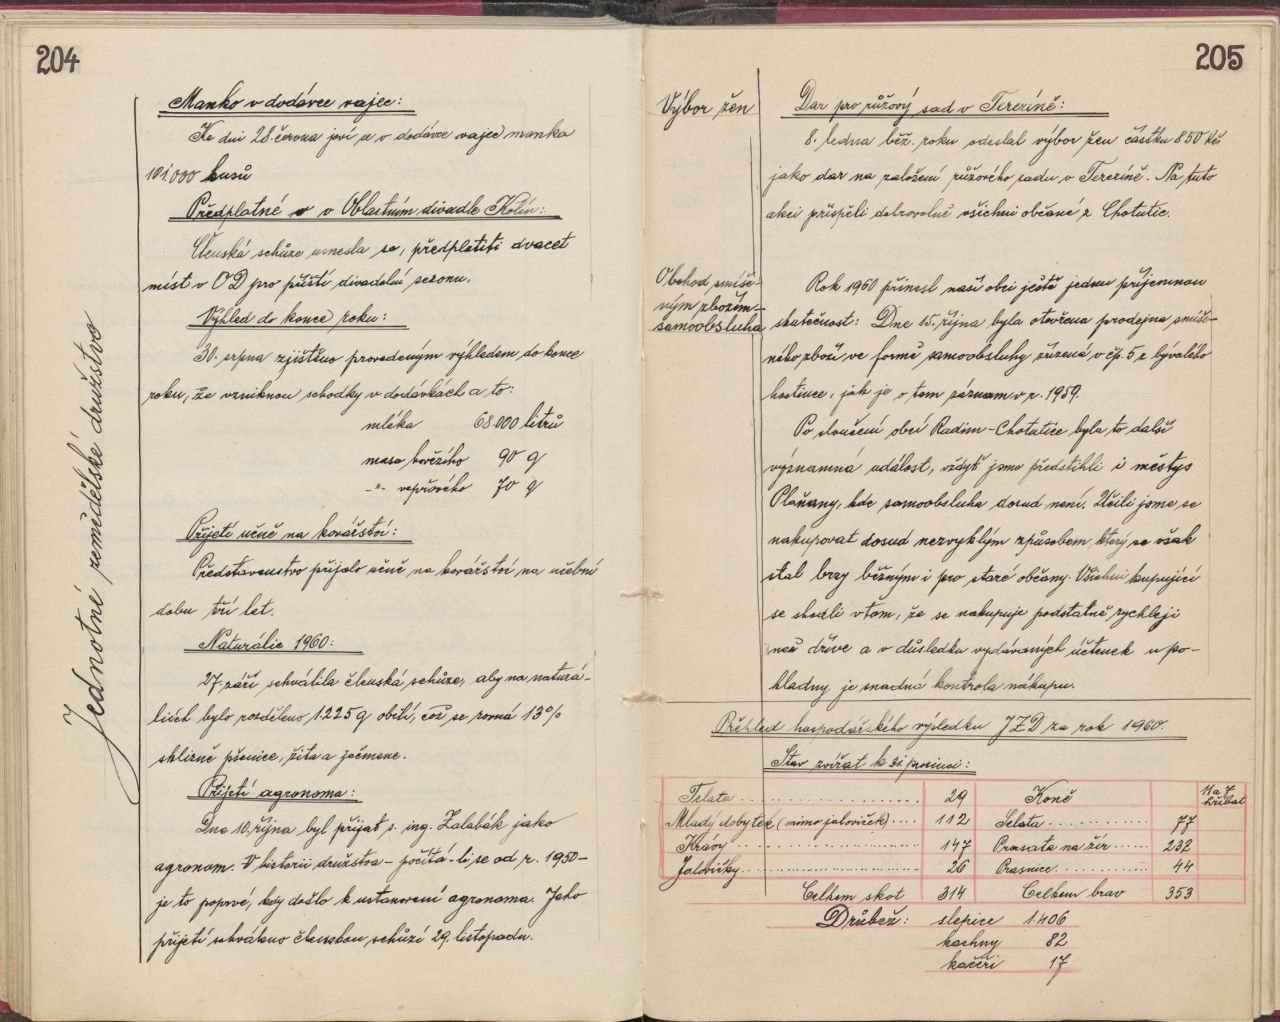 204
Jednotné zemědělské družstvo
Manko v dodávce vajec:
Ke dni 28. června jeví se v dodávce vajec manko
101.000 kusů
Předplatné v Oblastním divadle Kolín:
Členská schůze usnesla se, předplatiti dvacet
míst v OD pro příští divadelní sezonu.
Výhled do konce roku:
30. srpna zjištěno provedeným výhledem do konce
roku, že vzniknou schodky v dodávkách a to:
mléka 68.000 litrů
masa hovězího 90 q
-"- vepřového 70 q
Přijetí učně na kovářství:
Představenstvo přijalo učně na kovářství na učební
dobu tří let.
Naturálie 1960:
27. září schválila členská schůze, aby na naturá-
liích bylo rozděleno 1225 q obilí, což se rovná 13%
sklizně pšenice, žita a ječmene.
Přijetí agronoma:
Dne 10. října byl přijat s. ing. Zalabák jako
agronom. V historii družstva - počítá-li se od r. 1950 -
je to poprvé, kdy došlo k ustanovení agronoma. Jeho
přijetí schváleno členskou schůzí 29. listopadu.
205
Výbor žen
Dar pro růžový sad v Terezíně:
8. ledna běž. roku odeslal výbor žen částku 850 Kčs
jako dar na založení růžového sadu v Terezíně. Na tuto
akci přispěli dobrovolně všichni občané z Chotutic.
Obchod smíše-
ným zbožím -
samoobsluha
Rok 1960 přinesl naší obci ještě jednu příjemnou
skutečnost: Dne 15. října byla otevřena prodejna smíše-
ného zboží ve formě samoobsluhy zřízená v čp. 5 z bývalého
hostince, jak je o tom záznam v r. 1959.
Po sloučení obcí Radim - Chotutice byla to další
významná událost, vždyť jsme předstihli i městys
Plaňany, kde samoobsluha dosud není. Učili jsme se
nakupovat dosud nezvyklým způsobem, který se však
stal brzy běžným i pro staré občany. Všichni kupující
se shodli v tom, že se nakupuje podstatně rychleji
než dříve a v důsledku vydávaných účtenek u po-
kladny je snadná kontrola nákupu.
Přehled hospodářského výsledku JZD za rok 1960.
Stav zvířat k 31 prosinci:
Telata 29 Koně 11 a 7 hříbat
Mladý dobytek (mimo jaloviček) 112 Selata 77
Krávy 147 Prasata na žír 232
Jalovičky 26 Prasnice 44
Celkem skot 314 Celkem brav 353
Drůbež: slepice 1.406
kachny 82
kačeři 17